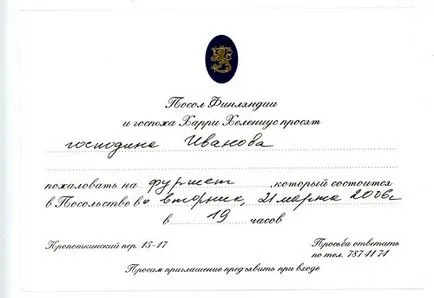 Посол Финляндии
и госпожа Харри Холениус просят
господина Иванова
пожаловать на фуршет, который состоится
в Посольстве во вторник, 21 марта 2006г
в 19 часов
Кропоткинский пер. 15-17
Просьба ответать
по тел. 787 41 74
Просим приглашение предъявить при входе